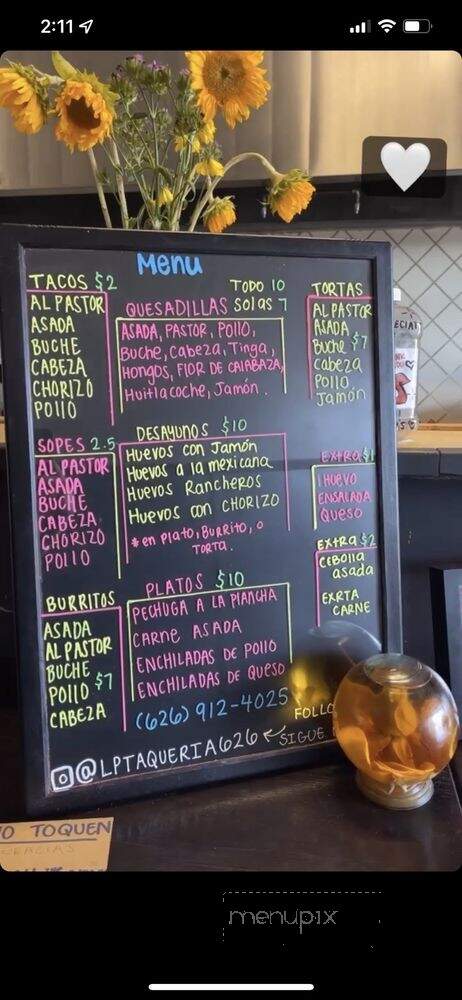 2:11
Menu
TACOS $2
AL PASTOR
ASADA
BUCHE
CABEZA
CHORIZO
POllO
SOPES 2.5
AL PASTOR
ASADA
BUCHE
CABEZA
CHORIZO
POllO
BURRITOS
ASADA
AL PASTOR
BUCHE
POllO $7
CABEZA
TODO 10
QUESADILLAS SOlAS 7
ASADA, PASTOR, POllO,
Buche, Cabeza, Tinga,
HONGOS, FlOR DE CAlABAZA,
Huitlacoche, Jamón.
DESAYUNOS $10
Huevos con Jamón
Huevos a la mexicana
Huevos Rancheros
Huevos con CHORIZO
*en Plato, Burrito, o
TORTA.
PLATOS $10
PECHUGA A LA PlANCHA
CARNE ASADA
ENCHILADAS DE POllO
ENCHILADAS DE QUESO
(626) 912-4025
TORTAS
Al PASTOR
ASADA
Buche $7
Cabeza
Pollo
Jamón
EXTRA $1
1 HUEVO
ENSALADA
QUESO
EXTRA $2
CEBOlla
asada
EXRTA
CARNE
FOLLO
SIGUE
@LPTAQUERIA626
NO TOQUEN
GRACIAS
menupix